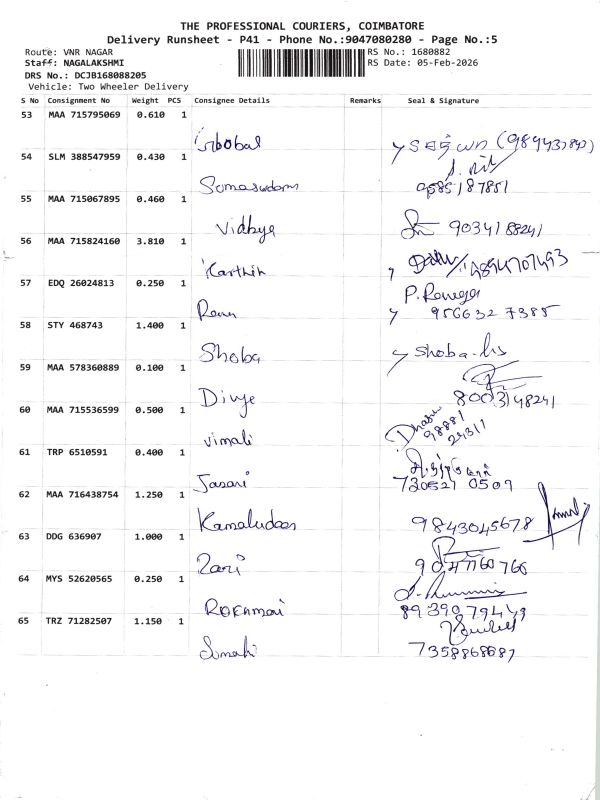 THE PROFESSIONAL COURIERS, COIMBATORE
Delivery Runsheet - P41 - Phone No.:9047080280 - Page No.:5
Route: VNR NAGAR
RS No.: 1680882
Staff: NAGALAKSHMI
RS Date: 05-Feb-2026
DRS No.: DCJB168088205
Vehicle: Two Wheeler Delivery
S No Consignment No Weight PCS Consignee Details Remarks Seal & Signature
53 MAA 715795069 0.610 1
54 SLM 388547959 0.430 1
9585187851
55 MAA 715067895 0.460 1
Vidhya 9034188241
56 MAA 715824160 3.810 1
Karthik 9894707493
57 EDQ 26024813 0.250 1
P. Renuga
956632 7385
58 STY 468743 1.400 1
Shoba Shoba
59 MAA 578360889 0.100 1
Divye 8003148241
60 MAA 715536599 0.500 1
98881
24311
vimali
61 TRP 6510591 0.400 1
730521 0509
62 MAA 716438754 1.250 1
9843045678
63 DDG 636907 1.000 1
64 MYS 52620565 0.250 1
65 TRZ 71282507 1.150 1
7358868687